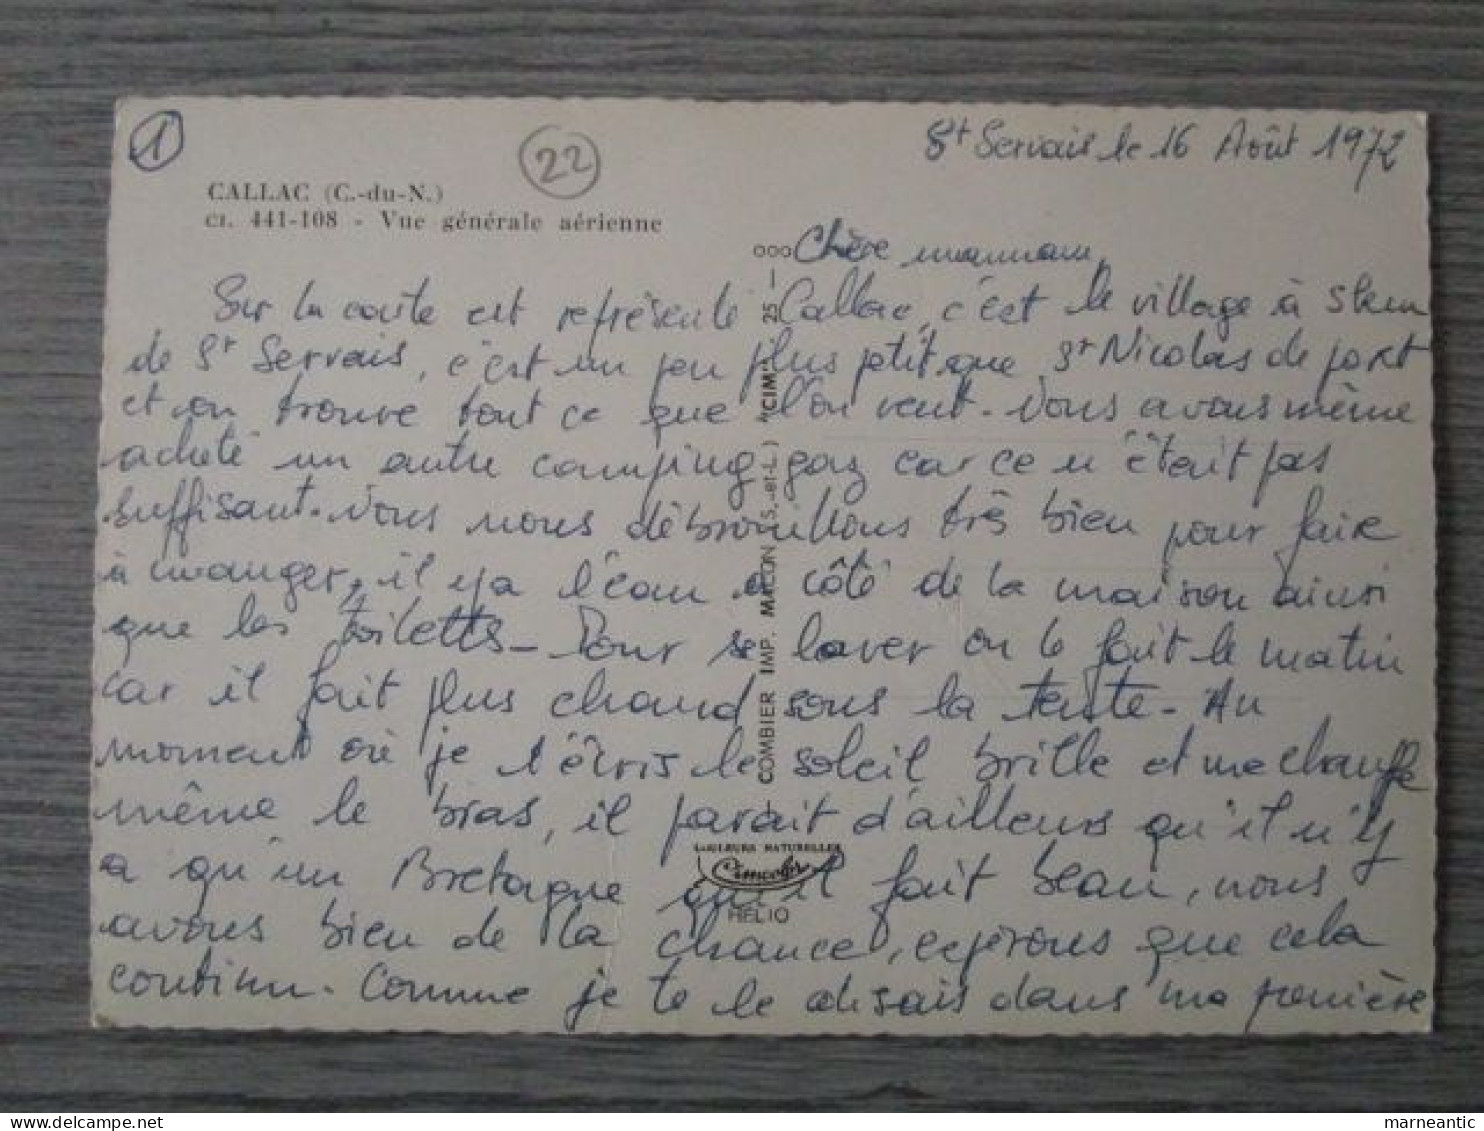 1
22
St Servais le 16 Août 1972
CALLAC (C.-du-N.)
CI. 441-108 - Vue générale aérienne
Chère maman,
Sur la carte est représenté Callac, c'est le village à 5km
de St Servais, c'est un peu plus petit que St Nicolas de port
et on trouve tout ce que l'on veut. Nous avons même
acheté un autre camping gaz car ce n'était pas
suffisant. Nous nous débrouillons très bien pour faire
à manger, il y a l'eau à côté de la maison ainsi
que les toilettes - Pour se laver on le fait le matin
car il fait plus chaud sous la tente - Au
moment où je t'écris le soleil brille et me chauffe
même le bras, il parait d'ailleurs qu'il n'y
a qu'en Bretagne qu'il fait beau, nous
avons bien de la chance, espérons que cela
continu. Comme je te le disais dans ma première
COMBIER IMP. MACON (S.-et-L.) "CIM" 25 - 000
COULEURS NATURELLES
Cimcolor
HELIO
marneantic